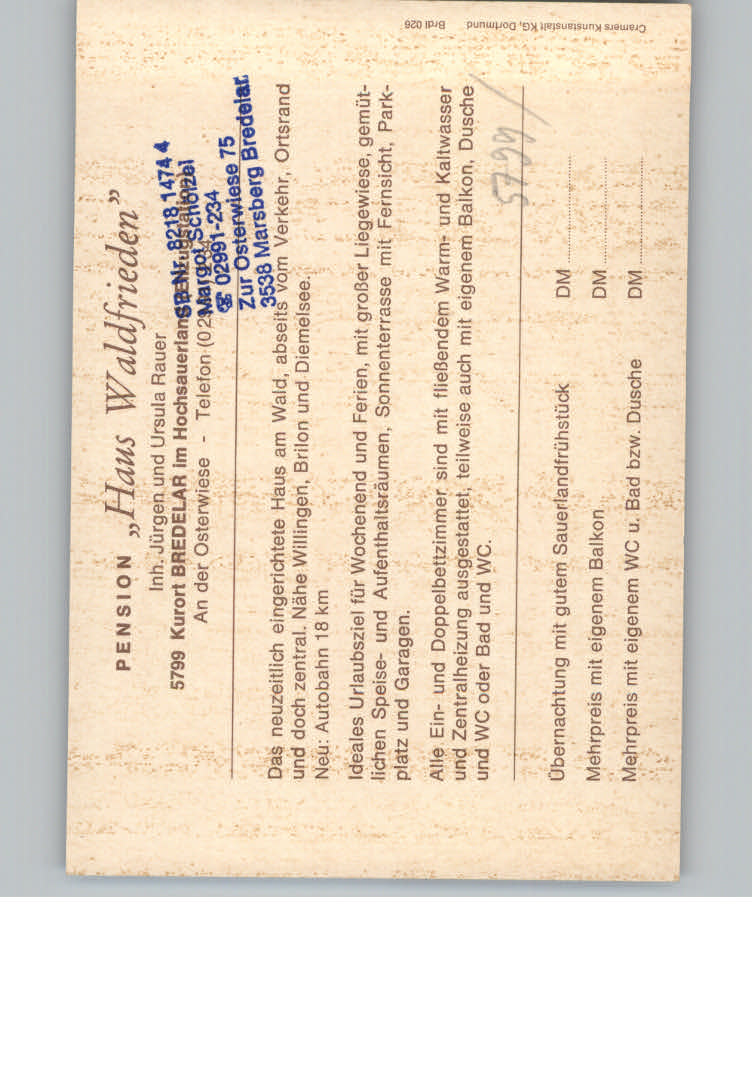 PENSION „Haus Waldfrieden”
Inh. Jürgen und Ursula Rauer
5799 Kurort BREDELAR im Hochsauerland
An der Osterwiese - Telefon (02
SB-Nr. 8218 1474 4
Margot Scholzel
☎ 02991-234
Zur Osterwiese 75
3538 Marsberg Bredelar
Das neuzeitlich eingerichtete Haus am Wald, abseits vom Verkehr, Ortsrand
und doch zentral. Nähe Willingen, Brilon und Diemelsee.
Neu: Autobahn 18 km
Ideales Urlaubsziel für Wochenend und Ferien, mit großer Liegewiese, gemüt-
lichen Speise- und Aufenthaltsräumen, Sonnenterrasse mit Fernsicht, Park-
platz und Garagen.
Alle Ein- und Doppelbettzimmer sind mit fließendem Warm- und Kaltwasser
und Zentralheizung ausgestattet, teilweise auch mit eigenem Balkon, Dusche
und WC oder Bad und WC.
5799/
Übernachtung mit gutem Sauerlandfrühstück DM
Mehrpreis mit eigenem Balkon DM
Mehrpreis mit eigenem WC u. Bad bzw. Dusche DM
Cramers Kunstanstalt KG, Dortmund Brdl 026